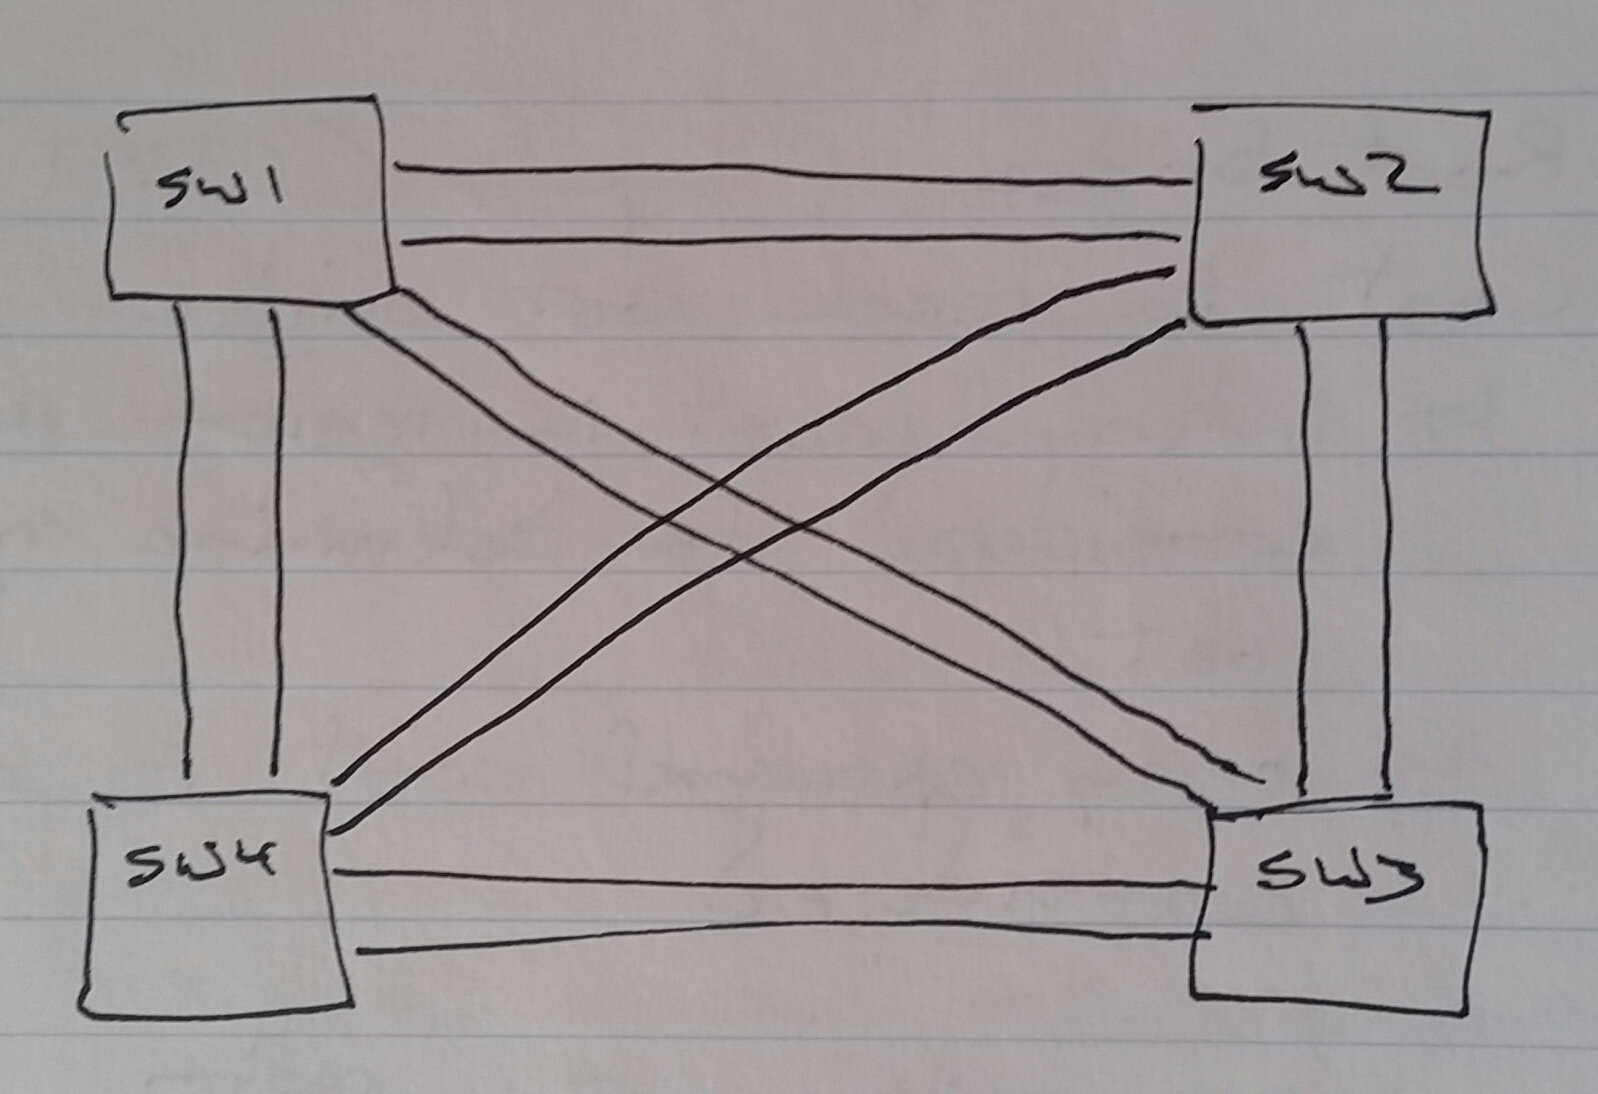 SW1
SW2
SW4
SW3